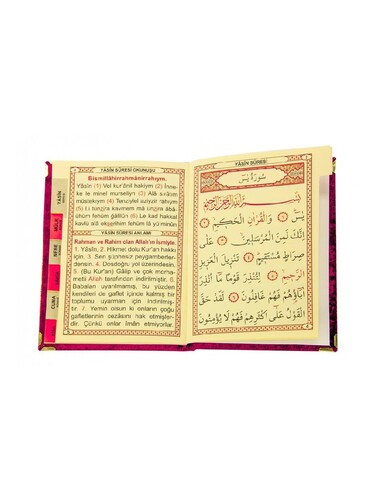 YÂSİN SÛRESİ OKUNUŞU
Bismillâhirrahmânirrahıym.
Yâsîn (1) Vel kur'ânil hakiym (2) İnne-
ke le minel murseliyn (3) Alâ sırâtım
müstekıym (4) Tenziylel aziyzir rahıym
(5) Li tünzira kavmen mâ ünzira âbâ-
ühüm fehüm ğâfilûn (6) Le kad hakkal
kavlü alâ ekserihim fehüm lâ yü'minûn
YÂSİN SÛRESİ ANLAMI
Rahman ve Rahîm olan Allah'ın İsmiyle.
1. Yâsîn, 2. Hikmet dolu Kur'an hakkı
için, 3. Sen şüphesiz peygamberler-
densin. 4. Dosdoğru yol üzerindesin.
5. (Bu Kur'an) Gâlip ve çok merha-
metli Allah tarafından indirilmiştir. 6.
Babaları uyarılmamış, bu yüzden
kendileri de gaflet içinde kalmış bir
toplumu uyarman için indirilmiş-
tir. 7. Yemin olsun ki onların çoğu
gafletlerinin cezasını hak etmişler-
dir. Çünkü onlar îmân etmiyorlar
YÂSİN
MÜLK
NEBE
CUMA
YÂSİN SÛRESİ
سُورَةُ يٰسٓ
بِسْمِ اللهِ الرَّحْمٰنِ الرَّحِيمِ
يٰسٓ ﴿١﴾ وَالْقُرْاٰنِ الْحَكِيمِ ﴿٢﴾
اِنَّكَ لَمِنَ الْمُرْسَلِينَ ﴿٣﴾ عَلٰى
صِرَاطٍ مُسْتَقِيمٍ ﴿٤﴾ تَنْزِيلَ الْعَزِيزِ
الرَّحِيمِ ﴿٥﴾ لِتُنْذِرَ قَوْمًا مَا اُنْذِرَ
اٰبَاؤُهُمْ فَهُمْ غَافِلُونَ ﴿٦﴾ لَقَدْ حَقَّ
الْقَوْلُ عَلٰى اَكْثَرِهِمْ فَهُمْ لَا يُؤْمِنُونَ